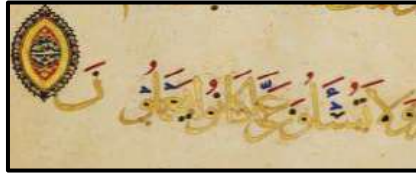 وَلَا تُسْئَلُونَ عَمَّا كَانُوا يَعْمَلُو نَ